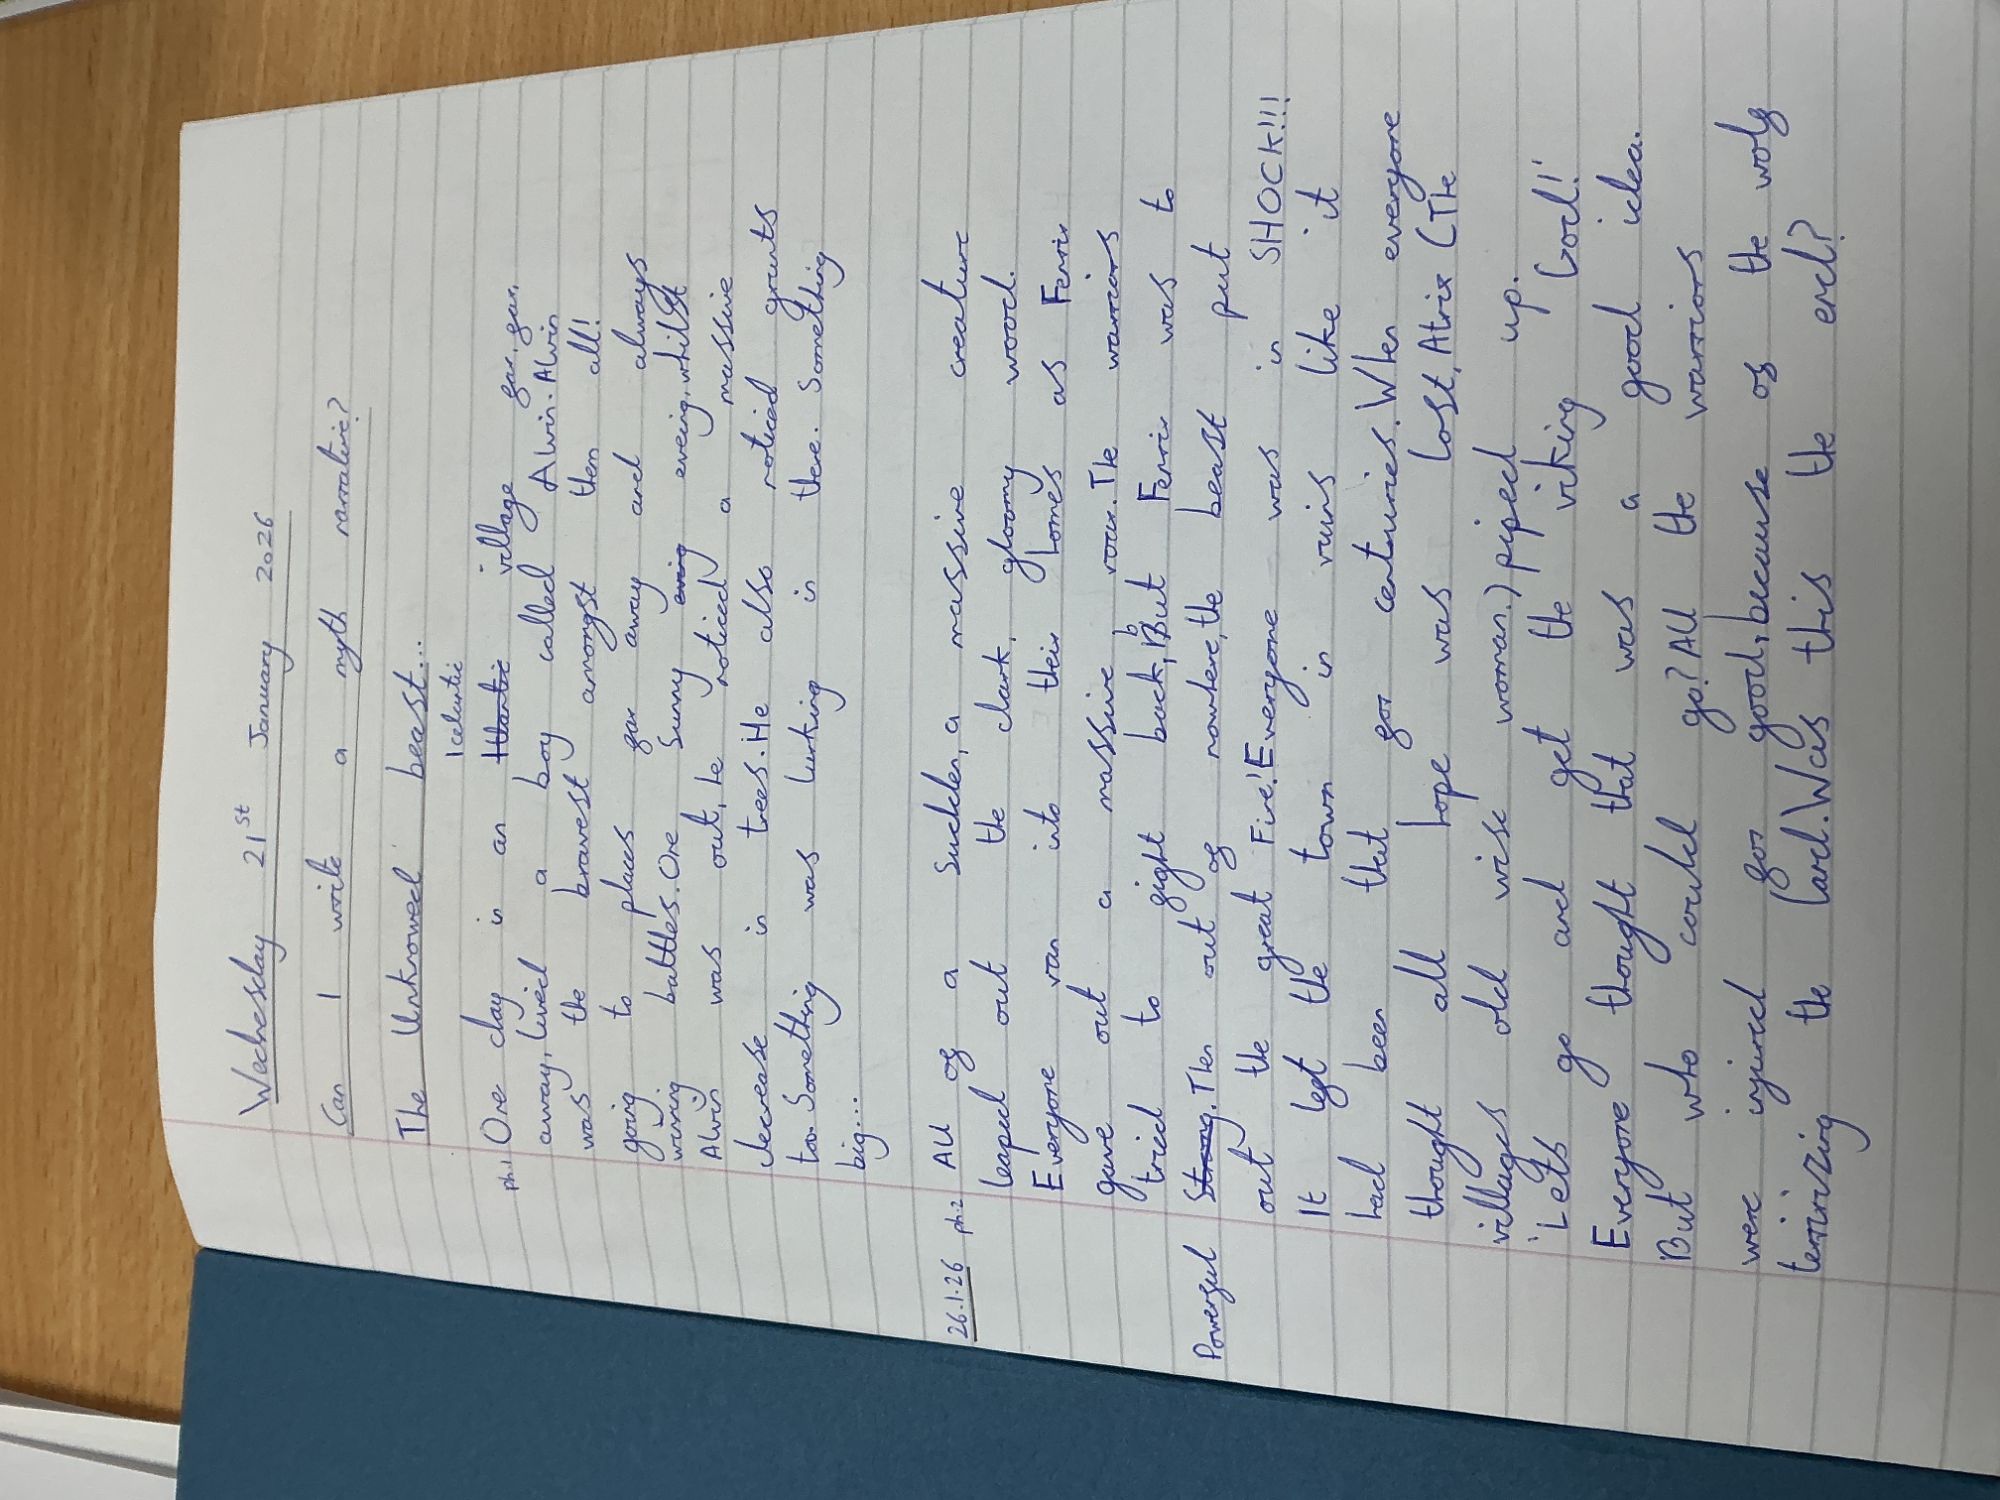 Wednesday 21st January 2026
Can I write a myth narrative?
The Unknowed beast...
Icelantic
ph.1 One day in an village far, far,
away, lived a boy called Alvin. Alvin
was the bravest amongst them all!
going to places far away and always
wining battles. One Sunny eveing, whilst
Alvin was out, he noticed a massive
decrease in trees. He also noticed grunts
too. Something was lurking in there. Something
big...
26.1.26 ph:2 All of a Sudden, a massive creature
leaped out the dark, gloomy wood.
Everyone ran into their homes as Fenrir
gave out a massive roar. The warriors
tried to fight back, But Fenrir was to
Powerful Strong. Then out of nowhere, the beast put
out the great Fire! Everyone was in SHOCK!!!
It left the town in ruins like it
had been that for centuries. When everyone
thought all hope was lost, Atrix (The
villages old wise woman.) piped up.
'Lets go and get the viking God!'
Everyone thought that was a good idea.
But who could go? All the warriors
were injured for good, because of the wolf
terrirzing the land. Was this the end?